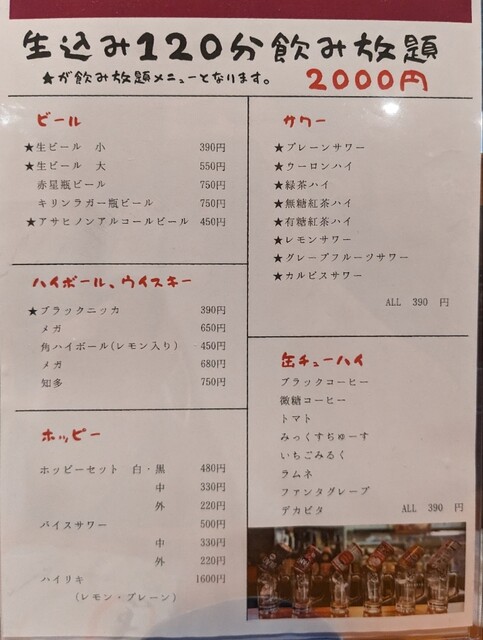 生込み120分飲み放題
★が飲み放題メニューとなります。 2000円
ビール
★生ビール 小 390円
★生ビール 大 550円
赤星瓶ビール 750円
キリンラガー瓶ビール 750円
★アサヒノンアルコールビール 450円
ハイボール、ウイスキー
★ブラックニッカ 390円
メガ 650円
角ハイボール(レモン入り) 450円
メガ 680円
知多 750円
ホッピー
ホッピーセット 白・黒 480円
中 330円
外 220円
バイスサワー 500円
中 330円
外 220円
ハイリキ 1600円
(レモン・プレーン)
サワー
★プレーンサワー
★ウーロンハイ
★緑茶ハイ
★無糖紅茶ハイ
★有糖紅茶ハイ
★レモンサワー
★グレープフルーツサワー
★カルピスサワー
ALL 390 円
缶チューハイ
ブラックコーヒー
微糖コーヒー
トマト
みっくすぢゅーす
いちごみるく
ラムネ
ファンタグレープ
デカビタ ALL 390 円